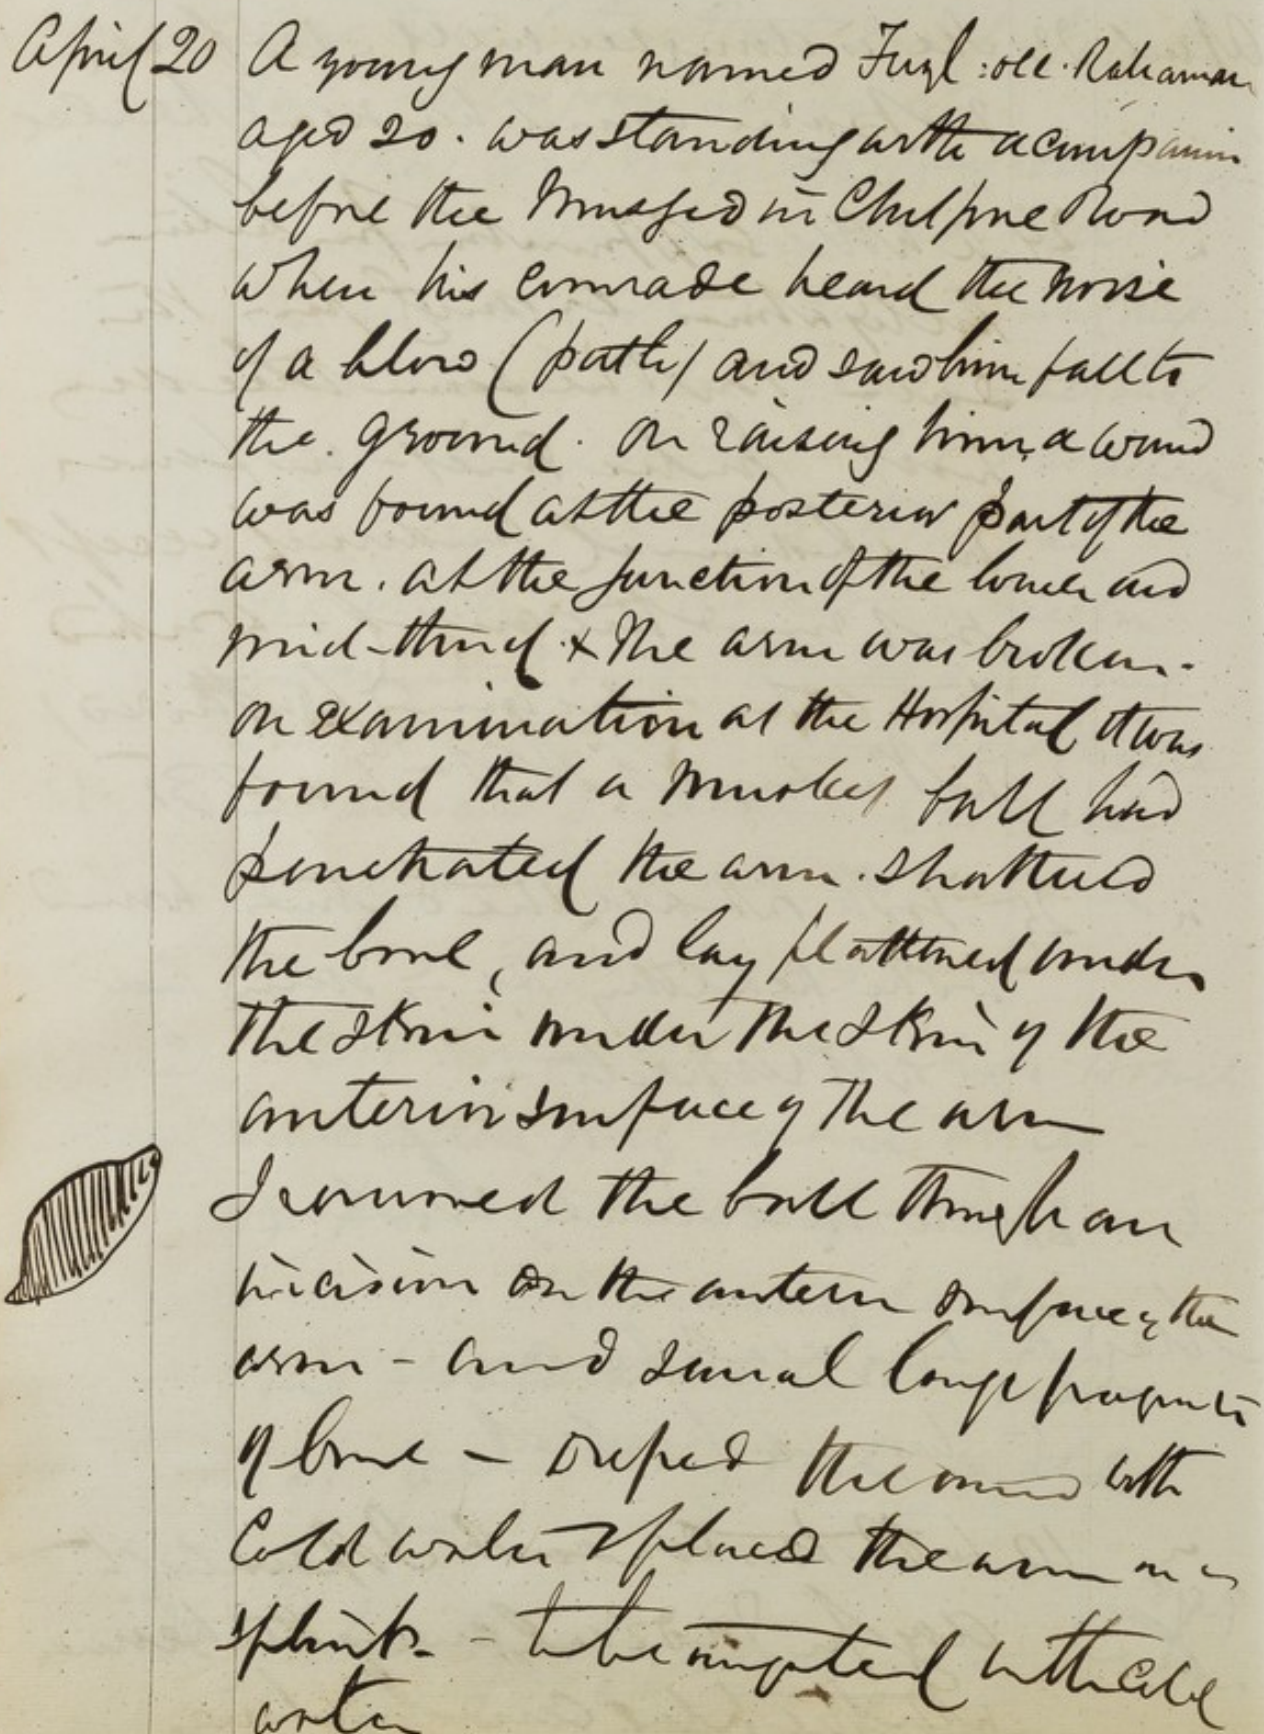 April 20 A young man named Fuzl :ool. Rahaman
aged 20. was standing with a companion
before the Musjed in Chitpore Road
when his comrade heard the noise
of a blow (path) and saw him fall to
the. ground. on raising him, a wound
was found at the posterior part of the
arm. at the junction of the lower and
mid-third & the arm was broken -
on examination at the Hospital it was
found that a musket ball had
penetrated the arm. shattered
the bone, and lay flattened under
the skin under the skin of the
anterior surface of the arm
I removed the ball through an
incision on the anterior surface of the
arm - and several large fragments
of bone - the wound with
Cold water & placed the arm on a
splint - to be irrigated with cold
water